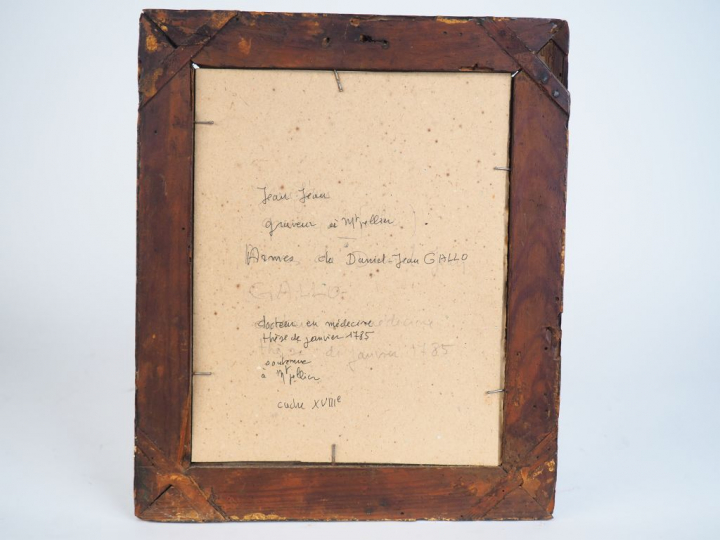 Jean Jean
graveur à Mtpellier
Armes de Daniel-Jean GALLO
GALLO
docteur en médecine
thèse de janvier 1785
soutenue
à Mtpellier
cadre XVIIIe